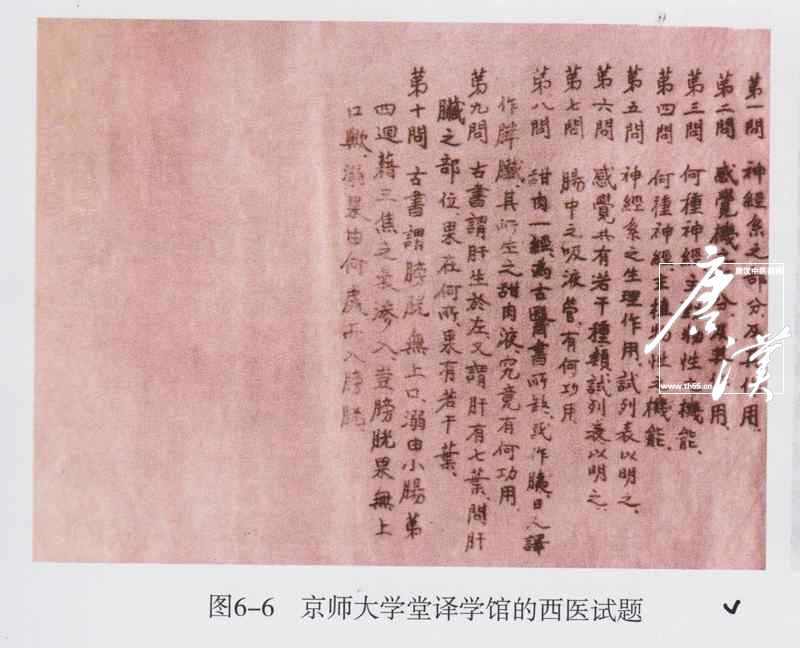 第一問 神經系之部分及其作用、
第二問 感覺機之部分及其作用、
第三問 何種神經主動物性之機能、
第四問 何種神經主植物性之機能、
第五問 神經系之生理作用、試列表以明之、
第六問 感覺共有若干種類試列表以明之、
第七問 腸中之吸液管、有何功用
第八問 甜肉一經為古醫書所缺、或作胰、日人譯
作脺臟、其所生之甜肉液究竟有何功用、
第九問 古書謂肝生於左又謂肝有七葉、問肝
臟之部位、果在何所、果有若干葉、
第十問 古書謂膀胱無上口溺由小腸第
四迴藉三焦之氣滲入豈膀胱果無上
口歟、溺果由何處而入膀胱、
唐漢
唐汉中医药网
www.th55.cn
图6-6 京师大学堂译学馆的西医试题